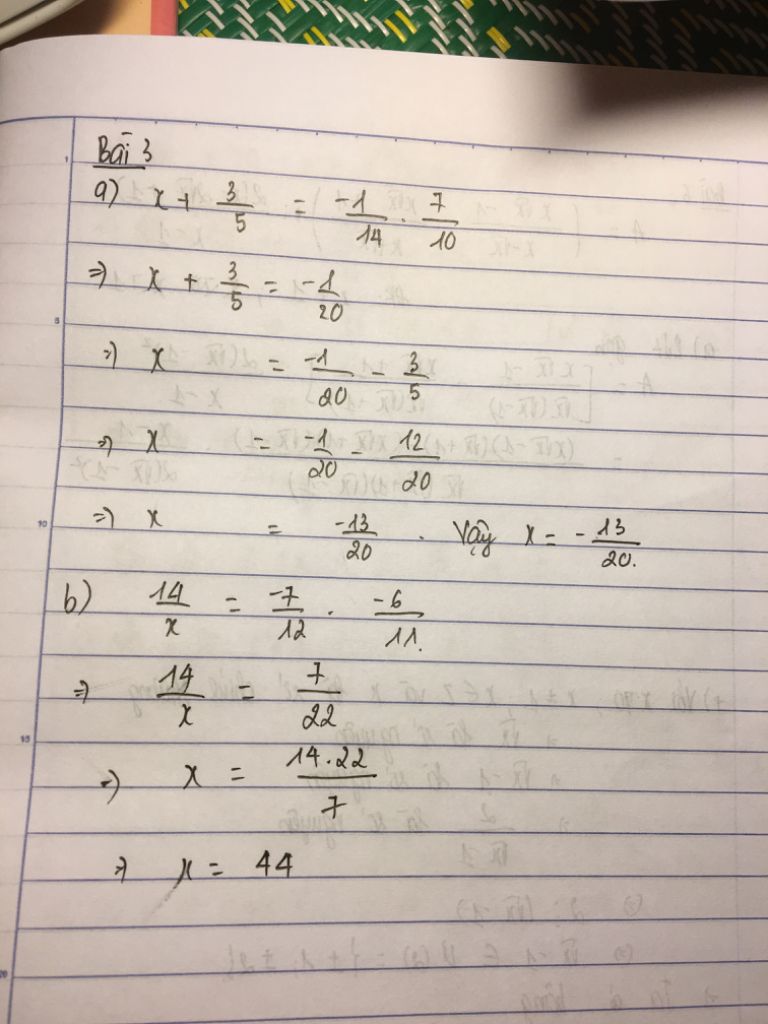 Bài 3
a) x + 3/5 = -1/14 . 7/10
=> x + 3/5 = -1/20
=> x = -1/20 - 3/5
=> x = -1/20 - 12/20
=> x = -13/20 . Vậy x = -13/20.
b) 14/x = -7/12 . -6/11.
=> 14/x = 7/22
=> x = 14.22/7
=> x = 44